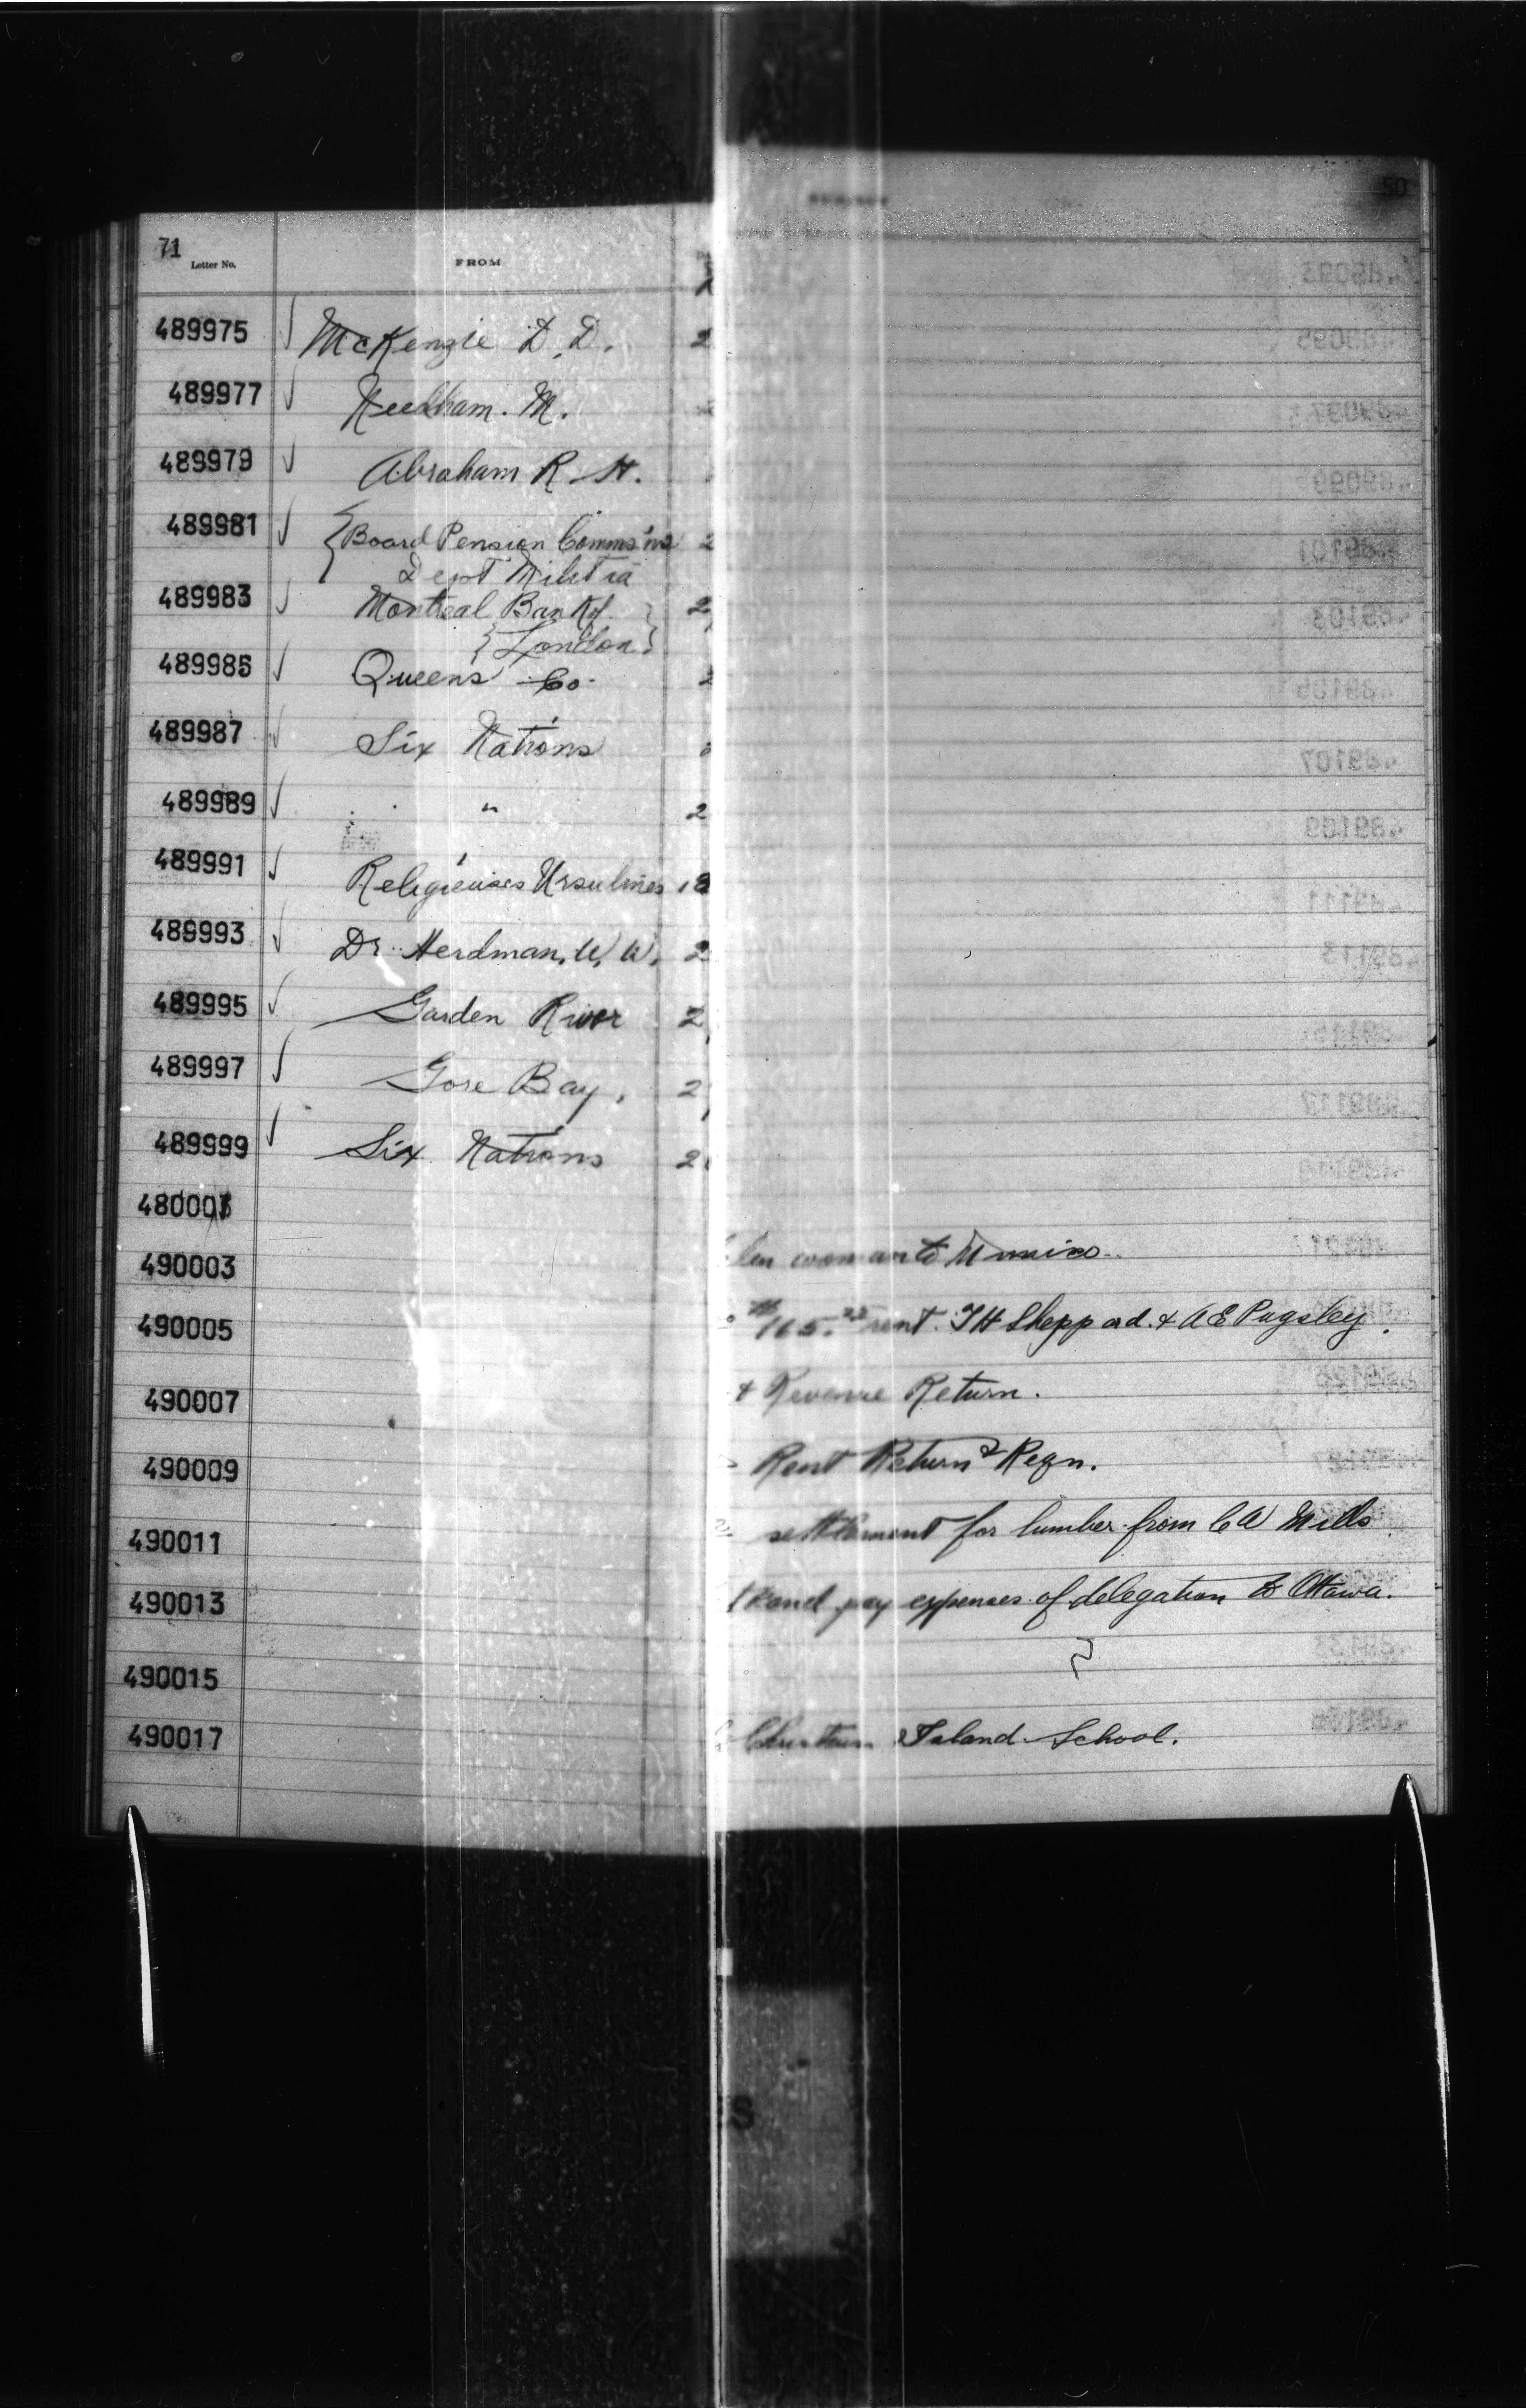 71
Letter No.
FROM
489975 McKenzie D. D. 2
489977 Needham. M.
489979 Abraham R. H.
489981 Board Pension Comms'ns 2
Dept Militia
489983 Montreal Bank of 2
London
489985 Queens Co. 2
489987 Six Nations
489989 " 2
489991 Religieuses Ursulines 18
489993 Dr. Herdman, W. W. 2
489995 Garden River 2
489997 Gore Bay, 2
489999 Six Nations 2
480001
490003
490005
490007
490009
490011
490013
490015
490017
SUBJECT
50
woman to
165. rent. T H Sheppard. & A E Pugsley.
& Revenue Return.
Rent Return & Reqn.
settlement for lumber from C A Mills
and pay expenses of delegation to Ottawa.
Christian Island School.